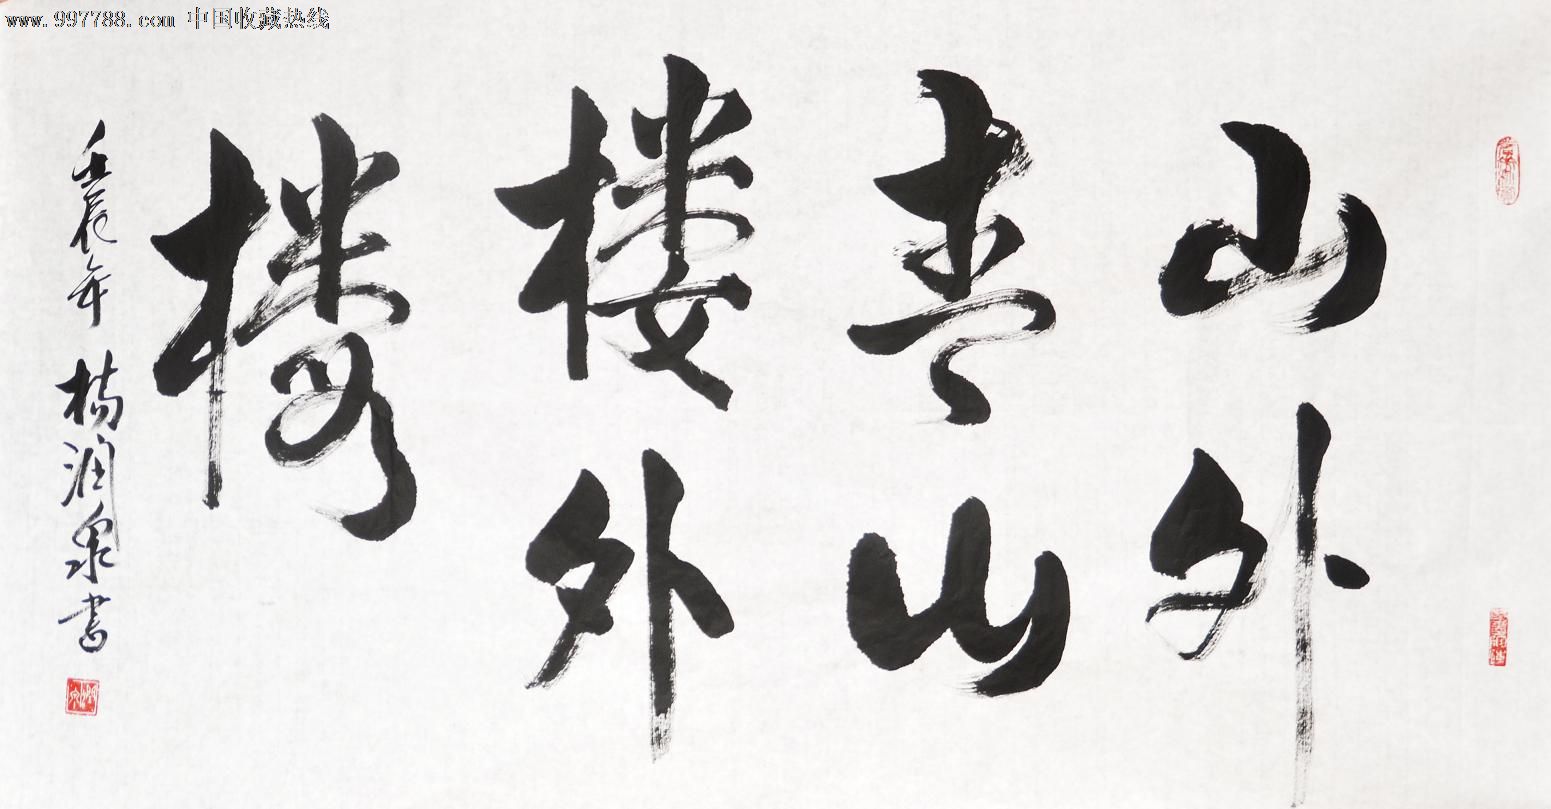 www.997788.com 中国收藏热线
山外
青山
楼外
楼
壬辰年 杨润泉書